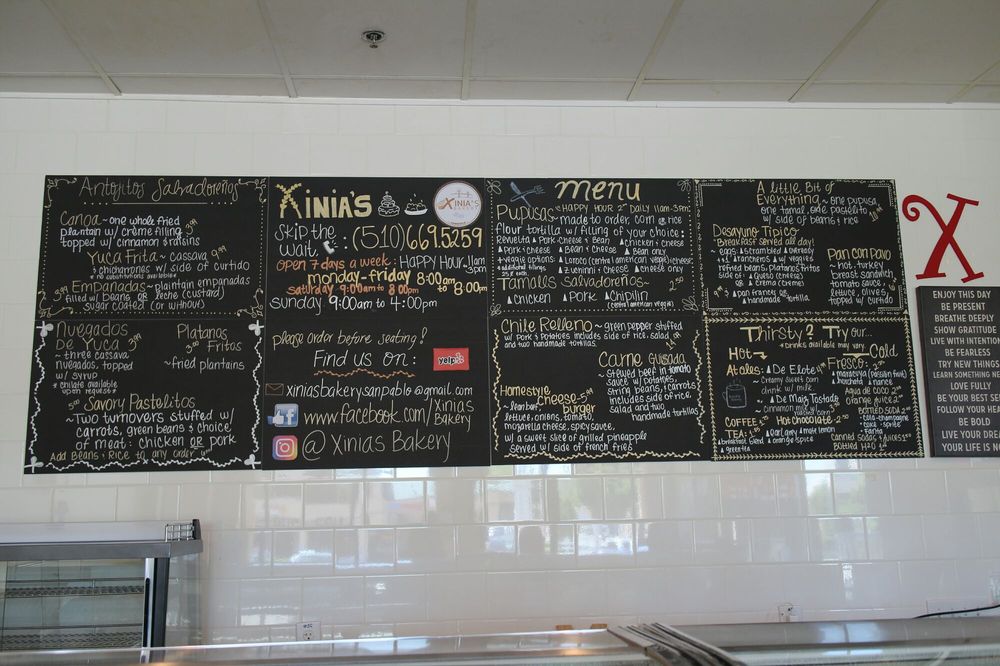 Antojitos Salvadoreños
Canoa ~ one whole fried
plantain w/ creme filling
topped w/ cinnamon & raisins
Yuca Frita ~ cassava
& chicharrones w/ side of curtido
Empanadas ~ plantain empanadas
filled w/ beans or leche (custard)
sugar coated (or without)
Nuegados
De Yuca 3.99
~ three cassava
nuegados, topped
w/ syrup
* chilate available
upon request *
Platanos
Fritos
~ fried plantains
Savory Pastelitos
- Two turnovers stuffed w/
carrots, green beans & choice
of meat: chicken or pork
Add Beans & Rice to any order
XINIA'S
XINIA'S
BAKERY
Skip the
wait : (510) 669.5259
open 7 days a week : Happy Hour 11am
3pm
monday-friday 8:00am
to 8:00pm
saturday 9:00am to 8:00pm
sunday 9:00am to 4:00pm
please order before seating!
Find us on:
yelp
xiniasbakerysanpablo@gmail.com
www.facebook.com/Xinias
Bakery
@ Xinias Bakery
menu
Pupusas "HAPPY HOUR 2" DAILY 11am-3pm
~ made to order, corn or rice
flour tortilla w/ filling of your choice:
Revuelta Pork & Cheese & Bean Chicken & Cheese
Pork & Cheese Bean & Cheese Bean only
Veggies & Cheese Loroco (central american veggie) & cheese
Zucchini & Cheese cheese only
Tamales Salvadoreños ~ 2.50
Chicken Pork Chipilin
(central american veggie)
Chile Relleno ~ green pepper stuffed
w/ Pork & Potatoes includes side of rice, salad
and two handmade tortillas
Carne Guisada
Stewed beef in tomato
sauce w/ potatoes,
string beans, carrots
includes side of rice
salad and two
handmade tortillas
Homestyle
Cheese
burger
~ lean beef,
lettuce, onions, tomato,
mozzarella cheese, spicy sauce,
w/ a sweet slice of grilled pineapple
served w/ side of french fries
A Little Bit of
Everything ~ one pupusa,
one tamal, one pastelito
w/ side of beans & rice
Desayuno Tipico
"Breakfast served all day!
~ eggs: scrambled or
w/ veggies
refried beans, platanos fritos
side of: Queso (cheese)
or Crema (creme)
Pan Frances or
handmade tortilla
Pan Con Pavo
hot turkey
sandwich w/
tomato sauce,
lettuce, olives,
topped w/ curtido
Thirsty? Try our...
drinks availability may vary.
Hot
Atoles: De Elote
~ Creamy sweet corn
drink w/ milk
De Maiz Tostado
Hot Chocolate
COFFEE
TEA:
breakfast blend
earl grey mint lemon
orange spice
green tea
Cold
Fresco:
maracuya (passion fruit)
horchata
Agua de coco
orange juice
BOTTLED SODA
- coca-champagne
- coke - sprite
- fanta
canned sodas & juices
BOTTLED H2O
X
ENJOY THIS DAY
BE PRESENT
BREATHE DEEPLY
SHOW GRATITUDE
LIVE WITH INTENTION
BE FEARLESS
TRY NEW THINGS
LEARN SOMETHING NE
LOVE FULLY
BE YOUR BEST SE
FOLLOW YOUR HEA
BE BOLD
LIVE YOUR DREA
YOUR LIFE IS NO